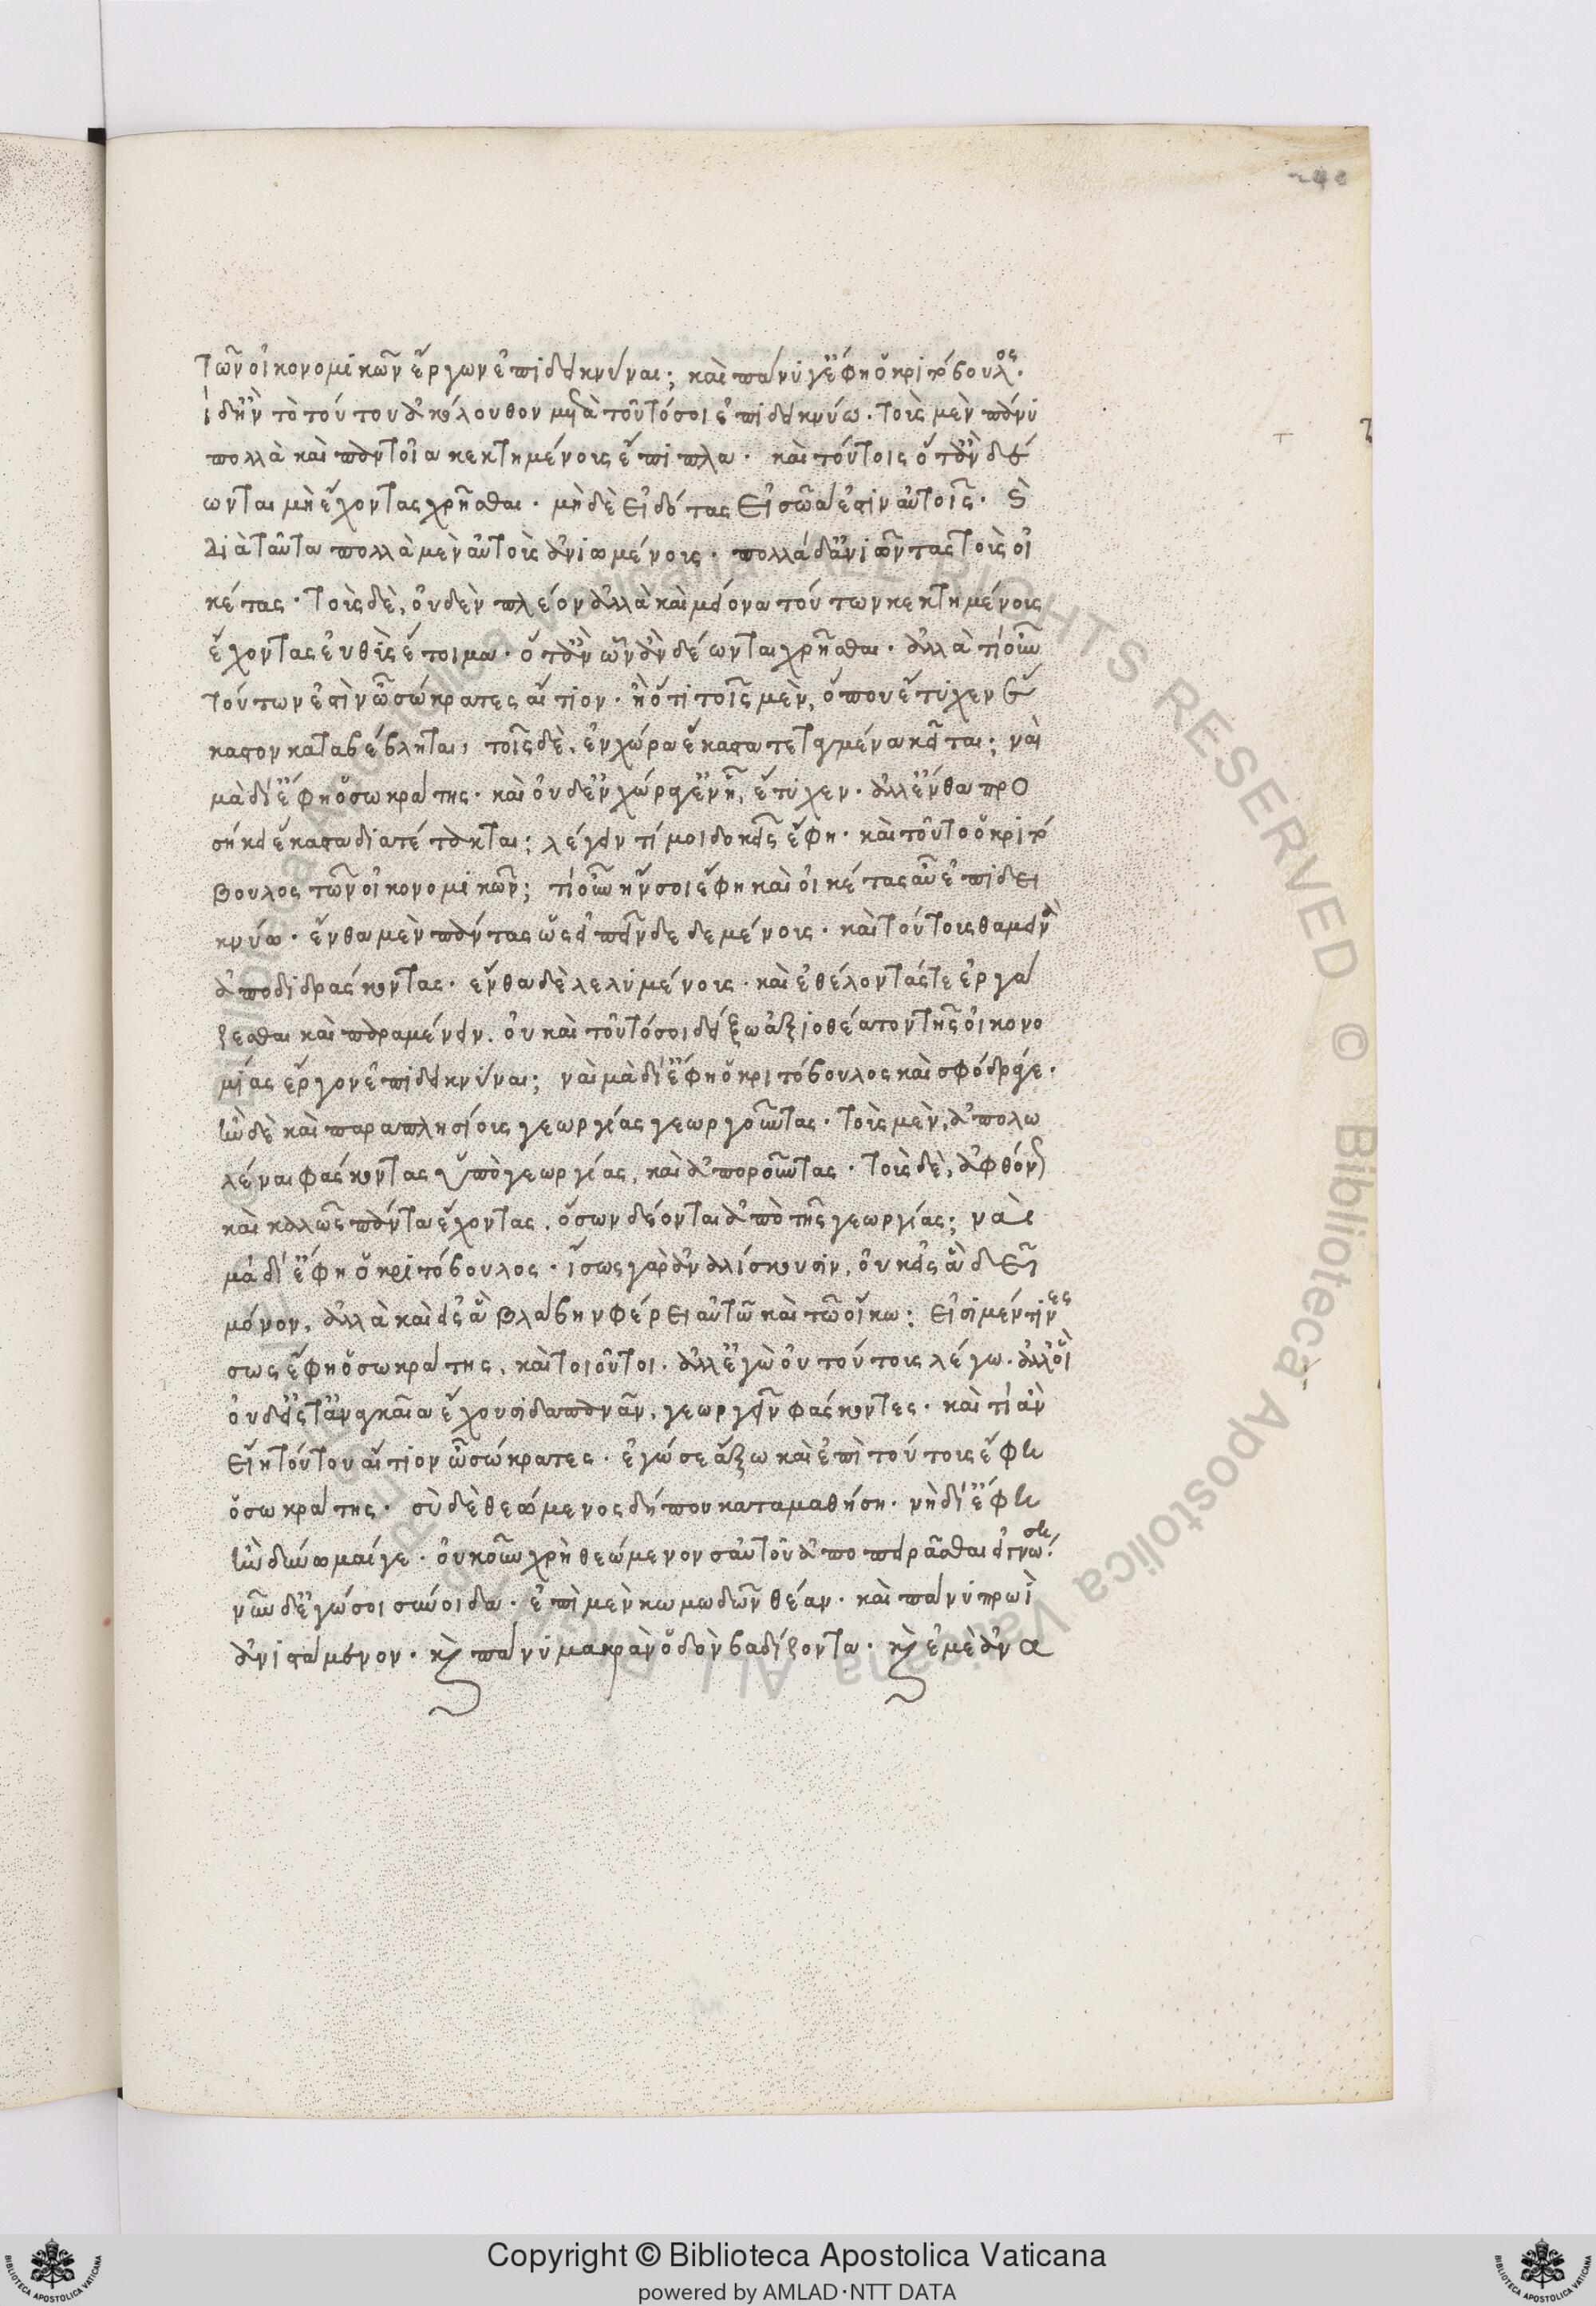 τῶν οἰκονομικῶν ἔργων ἐπιδεικνύναι; καὶ πάνύ γ' ἔφη ὁ κριτόβουλος.
τί δ' ἢν τὸ τούτου ἀκόλουθον μετὰ τοῦτό σοι ἐπιδεικνύω. τοὺς μὲν πάνυ
πολλὰ καὶ παντοῖα κεκτημένους ἔπιπλα. καὶ τούτοις ὅταν δέ
ωνται μὴ ἔχοντας χρῆσθαι. μὴδὲ εἰδότας εἰ σῶά ἐστιν αὐτοῖς. καὶ
διὰ ταῦτα πολλὰ μὲν αὐτοὺς ἀνιωμένους. πολλὰ δ' ἀνιῶντας τοὺς οἰ
κέτας. τοὺς δὲ, οὐδὲν πλέον ἀλλὰ καὶ μείονα τούτων κεκτημένους
ἔχοντας εὐθὺς ἕτοιμα. ὅταν ὧν ἂν δέωνται χρῆσθαι. ἀλλὰ τί οὖν
τούτων ἐστὶν ὦ σώκρατες αἴτιον. ἢ ὅτι τοῖς μὲν, ὅπου ἔτυχεν ἕ
καστον καταβέβληται, τοῖς δὲ, ἐν χώρα ἕκαστα τεταγμένα κεῖται; ναὶ
μὰ δί' ἔφη ὁ σωκράτης. καὶ οὐδ' ἐν χώρα γ' ἐν ἧ, ἔτυχεν. ἀλλ' ἔνθα προ
σήκει ἕκαστα διατέτακται; λέγειν τί μοι δοκεῖς ἔφη. καὶ τοῦτο ὁ κριτό
βουλος τῶν οἰκονομικῶν; τί οὖν ἤν σοι ἔφη καὶ οἰκέτας αὖ ἐπιδει
κνύω. ἔνθα μὲν πάντας ὡς εἰπεῖν δεδεμένους. καὶ τούτους θαμεινὰ
ἀποδιδράσκοντας. ἔνθα δὲ λελυμένους. καὶ ἐθέλοντάς τε ἐργά
ζεσθαι καὶ παραμένειν. οὐ καὶ τοῦτό σοι δείξω ἀξιοθέατον τῆς οἰκονο
μίας ἔργον ἐπιδεικνύναι; ναὶ μὰ δί' ἔφη ὁ κριτόβουλος καὶ σφόδρά γε.
ἢν δὲ καὶ παραπλησίους γεωργίας γεωργοῦντας. τοὺς μὲν, ἀπολω
λέναι φάσκοντας ὑπὸ γεωργίας, καὶ ἀποροῦντας. τοὺς δὲ, ἀφθόνως
καὶ καλῶς πάντα ἔχοντας, ὅσων δέονται ἀπὸ τῆς γεωργίας; ναὶ
μὰ δί' ἔφη ὁ κριτόβουλος. ἴσως γὰρ ἀναλίσκουσιν, οὐκ εἰς ἃ δεῖ
μόνον, ἀλλὰ καὶ εἰς ἃ βλάβην φέρει αὐτῶ καὶ τῶ οἴκω; εἰσὶ μέν τινες
σως ἔφη ὁ σωκράτης, καὶ τοιοῦτοι. ἀλλ' ἐγὼ οὐ τούτους λέγω. ἀλλ' οἳ
οὐδ' εἰς τἀναγκαῖα ἔχουσι δαπανᾶν, γεωργεῖν φάσκοντες. καὶ τί ἂν
εἴη τούτου αἴτιον ὦ σώκρατες. ἐγώ σε ἄξω καὶ ἐπὶ τούτους ἔφη
ὁ σωκράτης. σὺ δὲ θεώμενος δήπου καταμαθήση. νὴ δί' ἔφη
ἢν δύνωμαί γε. οὐκοῦν χρὴ θεώμενον σαυτοῦ ἀποπειρᾶσθαι εἰ γνώση.
νῦν δ' ἐγώ σοι σύνοιδα. ἐπὶ μὲν κωμωδῶν θέαν. καὶ πάνυ πρωῒ
ἀνιστάμενον. καὶ πάνυ μακρὰν ὁδὸν βαδίζοντα. καὶ ἐμὲ ἀνα
Copyright © Biblioteca Apostolica Vaticana
powered by AMLAD·NTT DATA